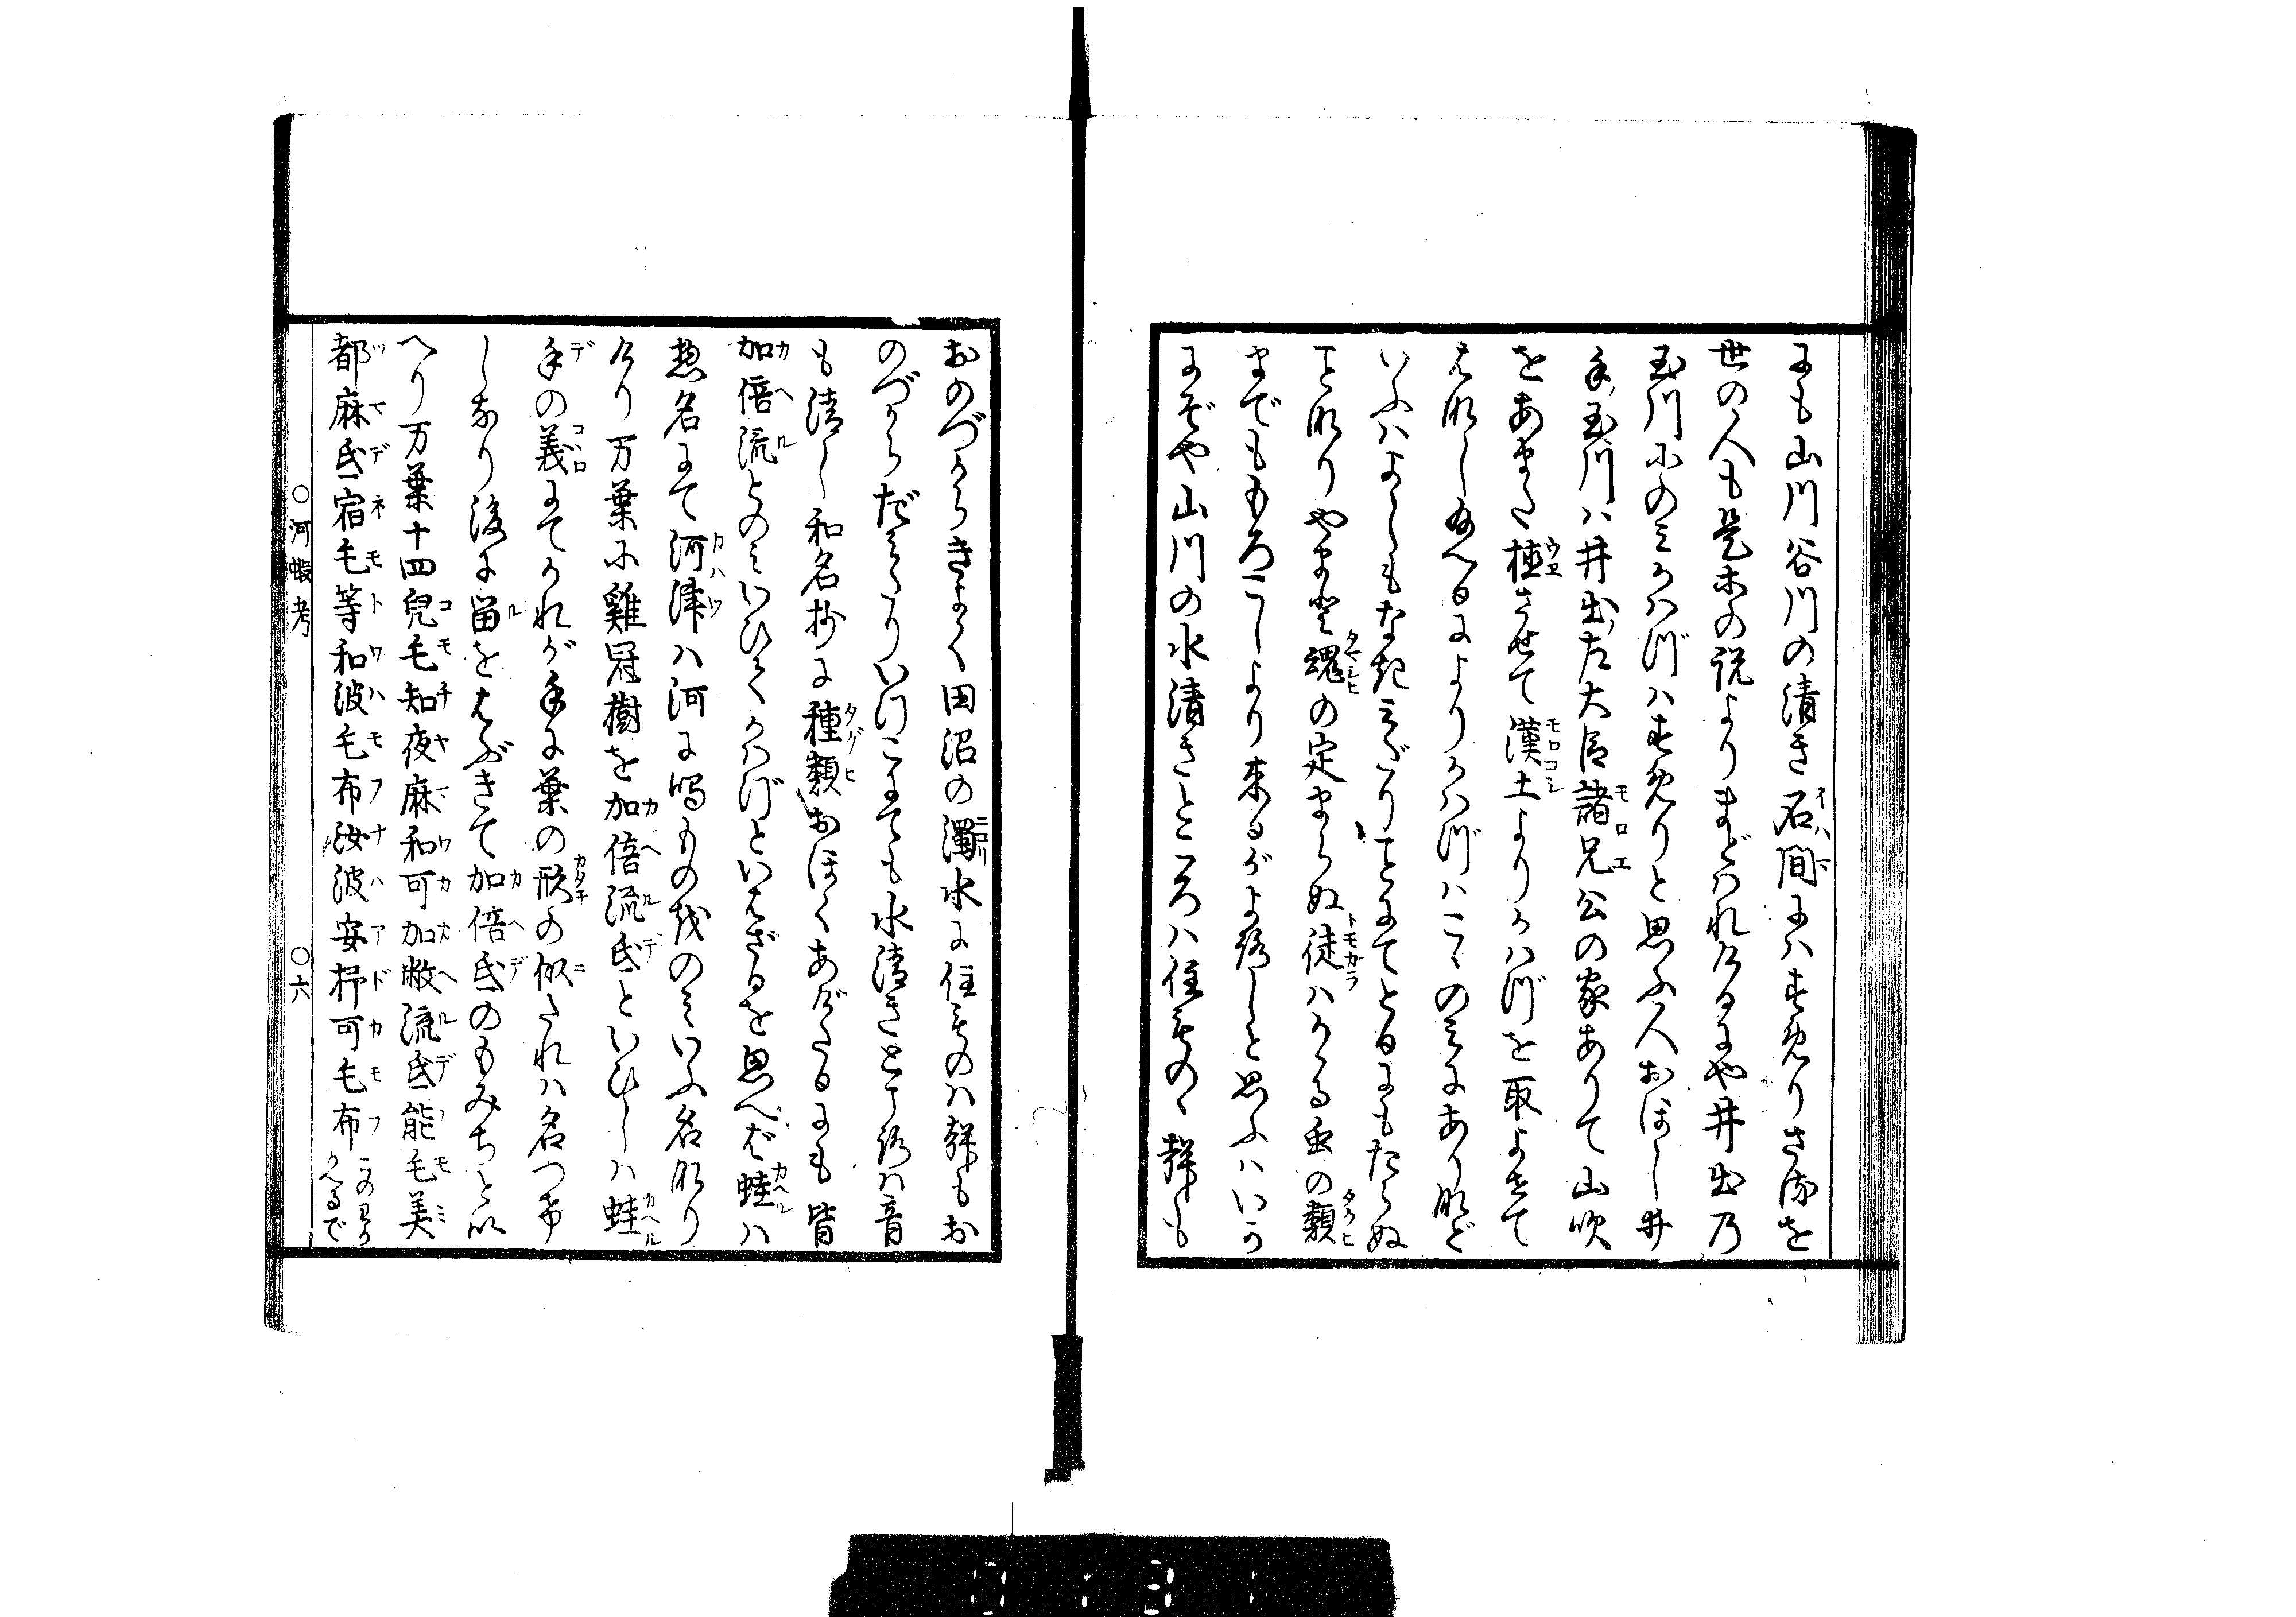 にも山川谷川の清き石間にハすめりさるを
世の人も是等の説よりまどハれけるにや井出乃
玉川にのミかハづハすめりと思ふ人おほし井
手玉川ハ井出左大臣諸兄公の家ありて山吹
をあまた植させて漢土よりかハづを取よせて
はなし給へるによりかハづハこゝのミにありなど
いふハよしもなきミだりごとにてとるにもたらぬ
ことなりやまと魂の定まらぬ徒ハかゝる虫の類
までももろこしより来るがよろしと思ふハいか
にぞや山川の水清きところハ住ものゝ声も
おのづからきよく田沼の濁水に住ものハ声もお
のづからだミたりいづこにても水清きところハ音
も清し和名抄に種類おほくあがたるにも皆
加倍流とのミいひてかハづといはざるを思へば蛙ハ
惣名にて河津ハ河に鳴ものをのミいふ名なり
けり万葉に雞冠樹を加倍流氐といひしハ蛙
手の義にてかれが手に葉の形の似たれハ名つけ
しなり後に留をはぶきて加倍氐のもみちとい
へり万葉十四兒毛知夜麻和可加敝流氐能毛美
都麻氐宿毛等和波毛布汝波安杼可毛布
○河蝦考 ○六